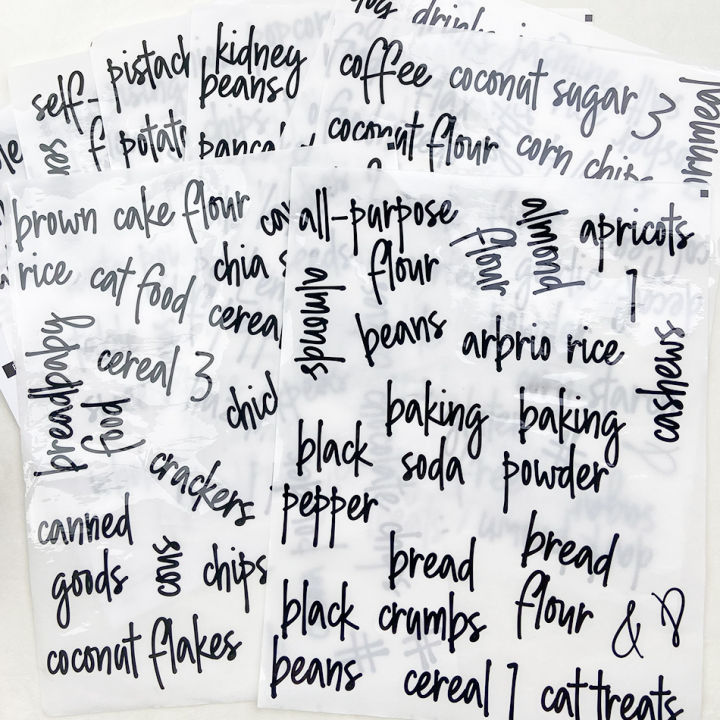 drinks
kidney
beans
pistach
self-
potato
coffee
coconut sugar 3
coconut flour
corn chips
brown
rice
cake flour
cat food
chia
cereal
cereal 3
bread
baby
food
crackers
canned
goods
chips
coconut flakes
all-purpose
flour
almond
flour
apricots
1
almonds
beans
arbrio rice
cashews
baking
soda
baking
powder
black
pepper
bread
crumbs
bread
flour
& &
black
beans
cereal 1
cat treats